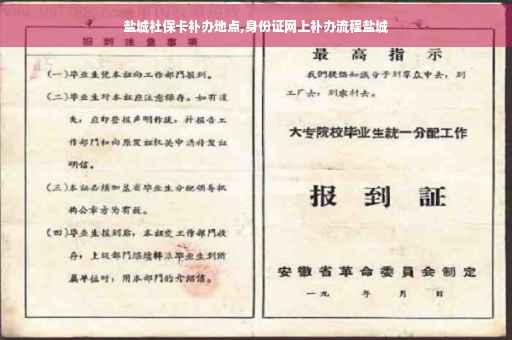 盐城社保卡补办地点,身份证网上补办流程盐城
报到注意事项
(一)毕业生凭本证向工作部门报到。
(二)毕业生对本证应注意保存。如有遗
失,应即登报声明作废,并报告工
作部门和向原发证机关申请补发证
明信。
(三)本证必须加盖省毕业生分配领导机
构公章方为有效。
(四)毕业生报到后,本证交工作部门收
存;上级部门继续转派毕业生到所
属单位时,用本部门的介绍信。
最高指示
我们提倡知识分子到群众中去,到
工厂去,到农村去。
大专院校毕业生統一分配工作
报到証
安徽省革命委員会制定
一九 年 月 日